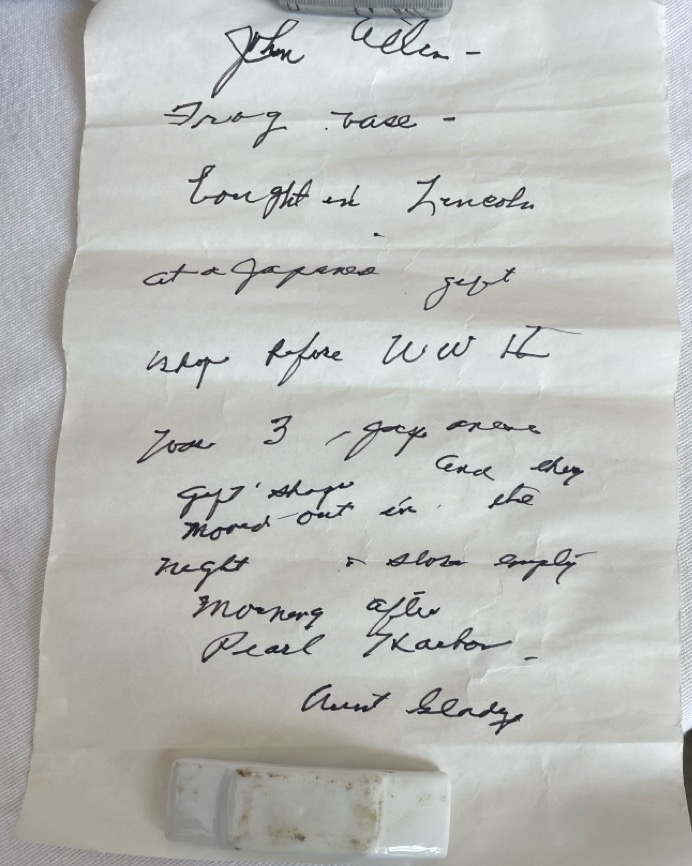 John Allen -
Frog vase -
bought in Lincoln
at a Japanes gift
shop before WW II
Was 3 - Japanese
gift shops and they
moved out in the
night & store empty
morning after
Pearl Harbor -
Aunt Gladys